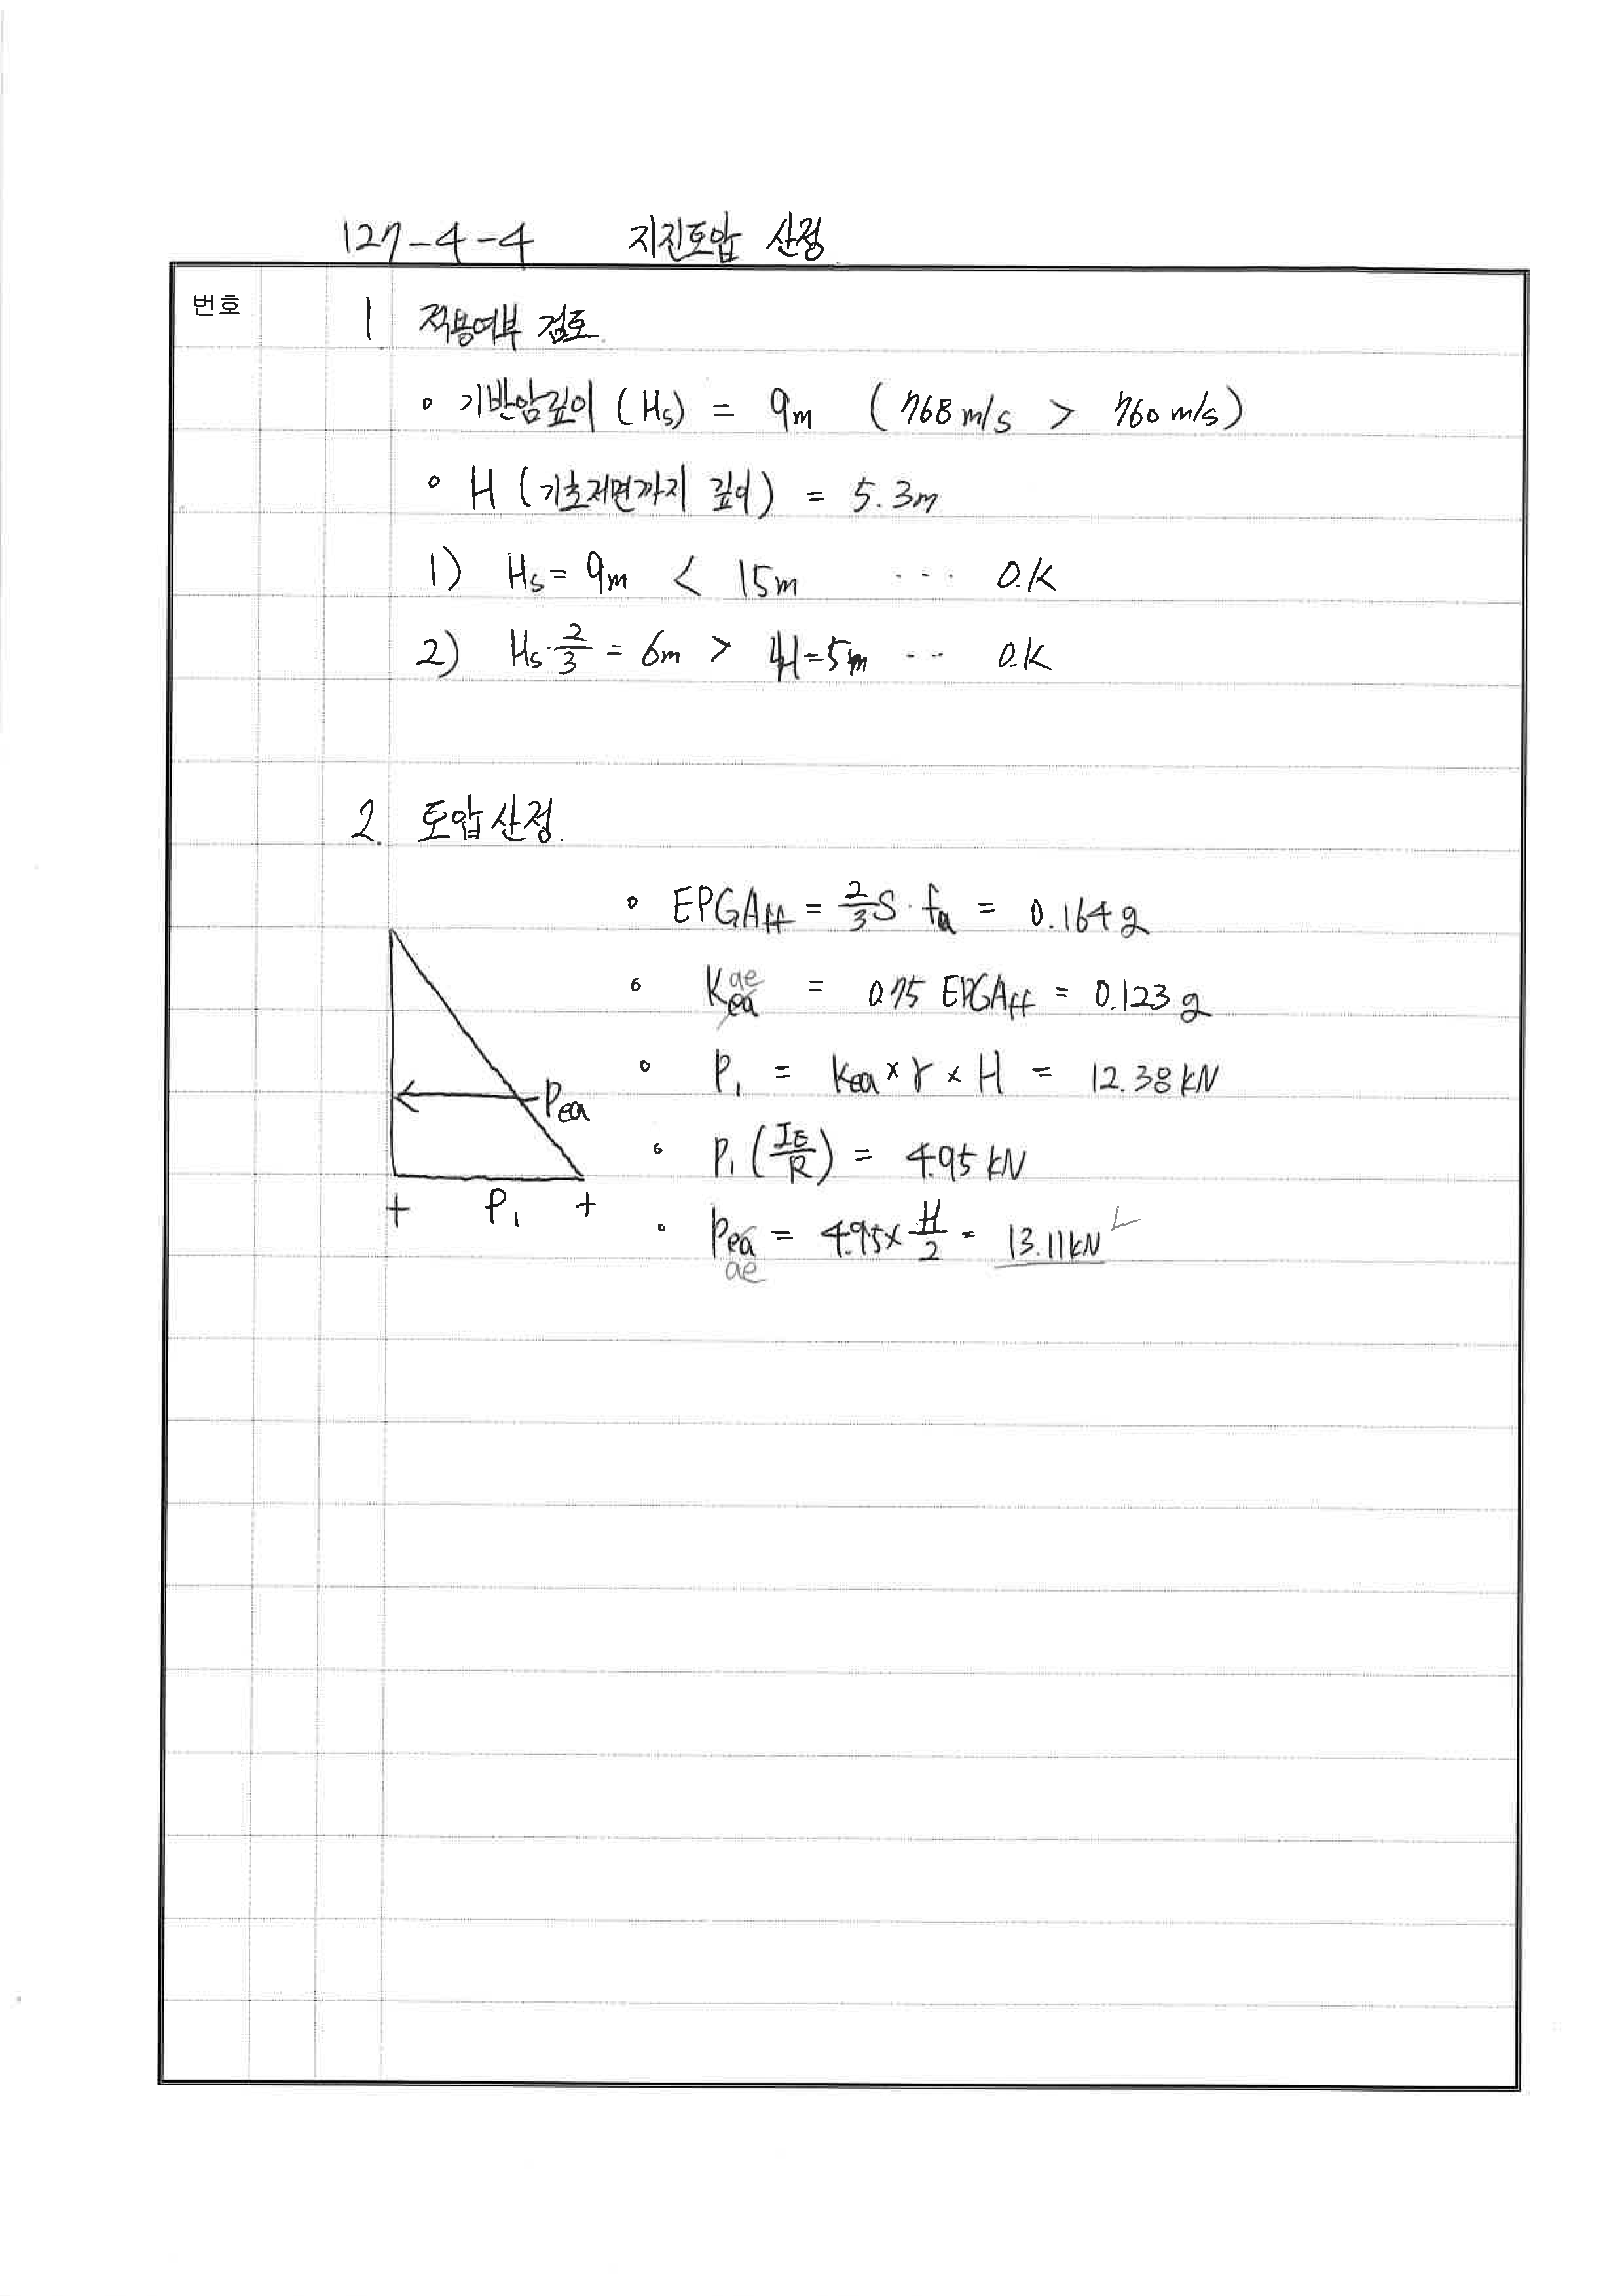 127-4-4 지진토압 산정
번호
1 적용여부 검토
∘ 기반암깊이 (Hs) = 9m (768 m/s > 760 m/s)
∘ H (기초저면까지 깊이) = 5.3m
1) Hs = 9m < 15m ... O.K
2) Hs·2/3 = 6m > H=5m .. O.K
2. 토압산정.
∘ EPGAff = 2/3 S·fa = 0.164g
∘ Kea ae = 0.75 EPGAff = 0.123g
∘ P1 = Kea × r × H = 12.38 kN
Pea
∘ P1 (IE/R) = 4.95 kN
+ P1 +
∘ Pea = 4.95 × H/2 = 13.11kN
ae